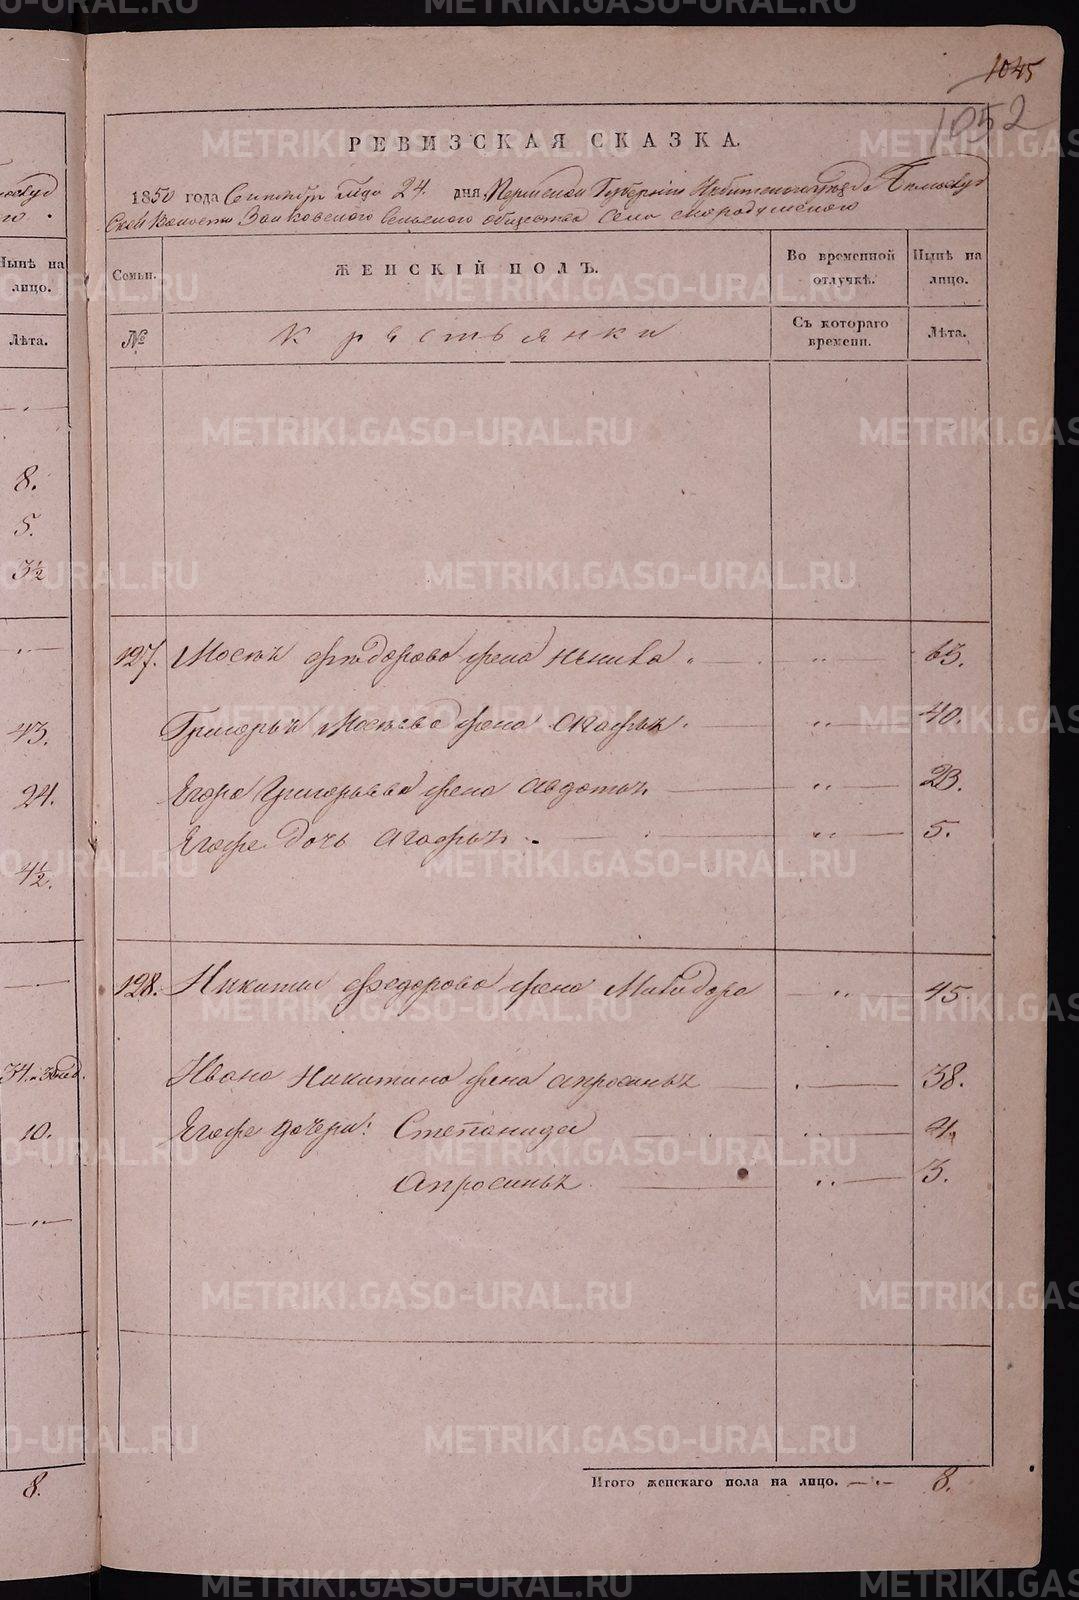 1045
1052
РЕВИЗСКАЯ СКАЗКА.
1850 года Сентября м҃ца 24. дня, Пермской Губернiи Ирбитского уезда Белослуд
ской Волости Зайковского Сельского общества села Скородумского
Семьи. ЖЕНСКIЙ ПОЛЪ. Во временной отлучкѣ. Нынѣ на лицо.
№ Крестьянки Съ котораго времени. Лѣта.
127. Мосея Федорова жена 63.
Григорья Мосеева жена Агафья 40.
Егора Григорьева жена Авдотья 23.
Егоже дочь Агафья 5.
128. Никиты Федорова жена Минодора 45
Ивана Никитина жена Апросинья 38.
Егоже дочери: Степанида
Апросинья 3.
Итого женскаго пола на лицо. 8.
Нынѣ на лицо.
Лѣта.
8.
5.
3½
43.
24.
4½.
10.
8.
METRIKI.GASO-URAL.RU